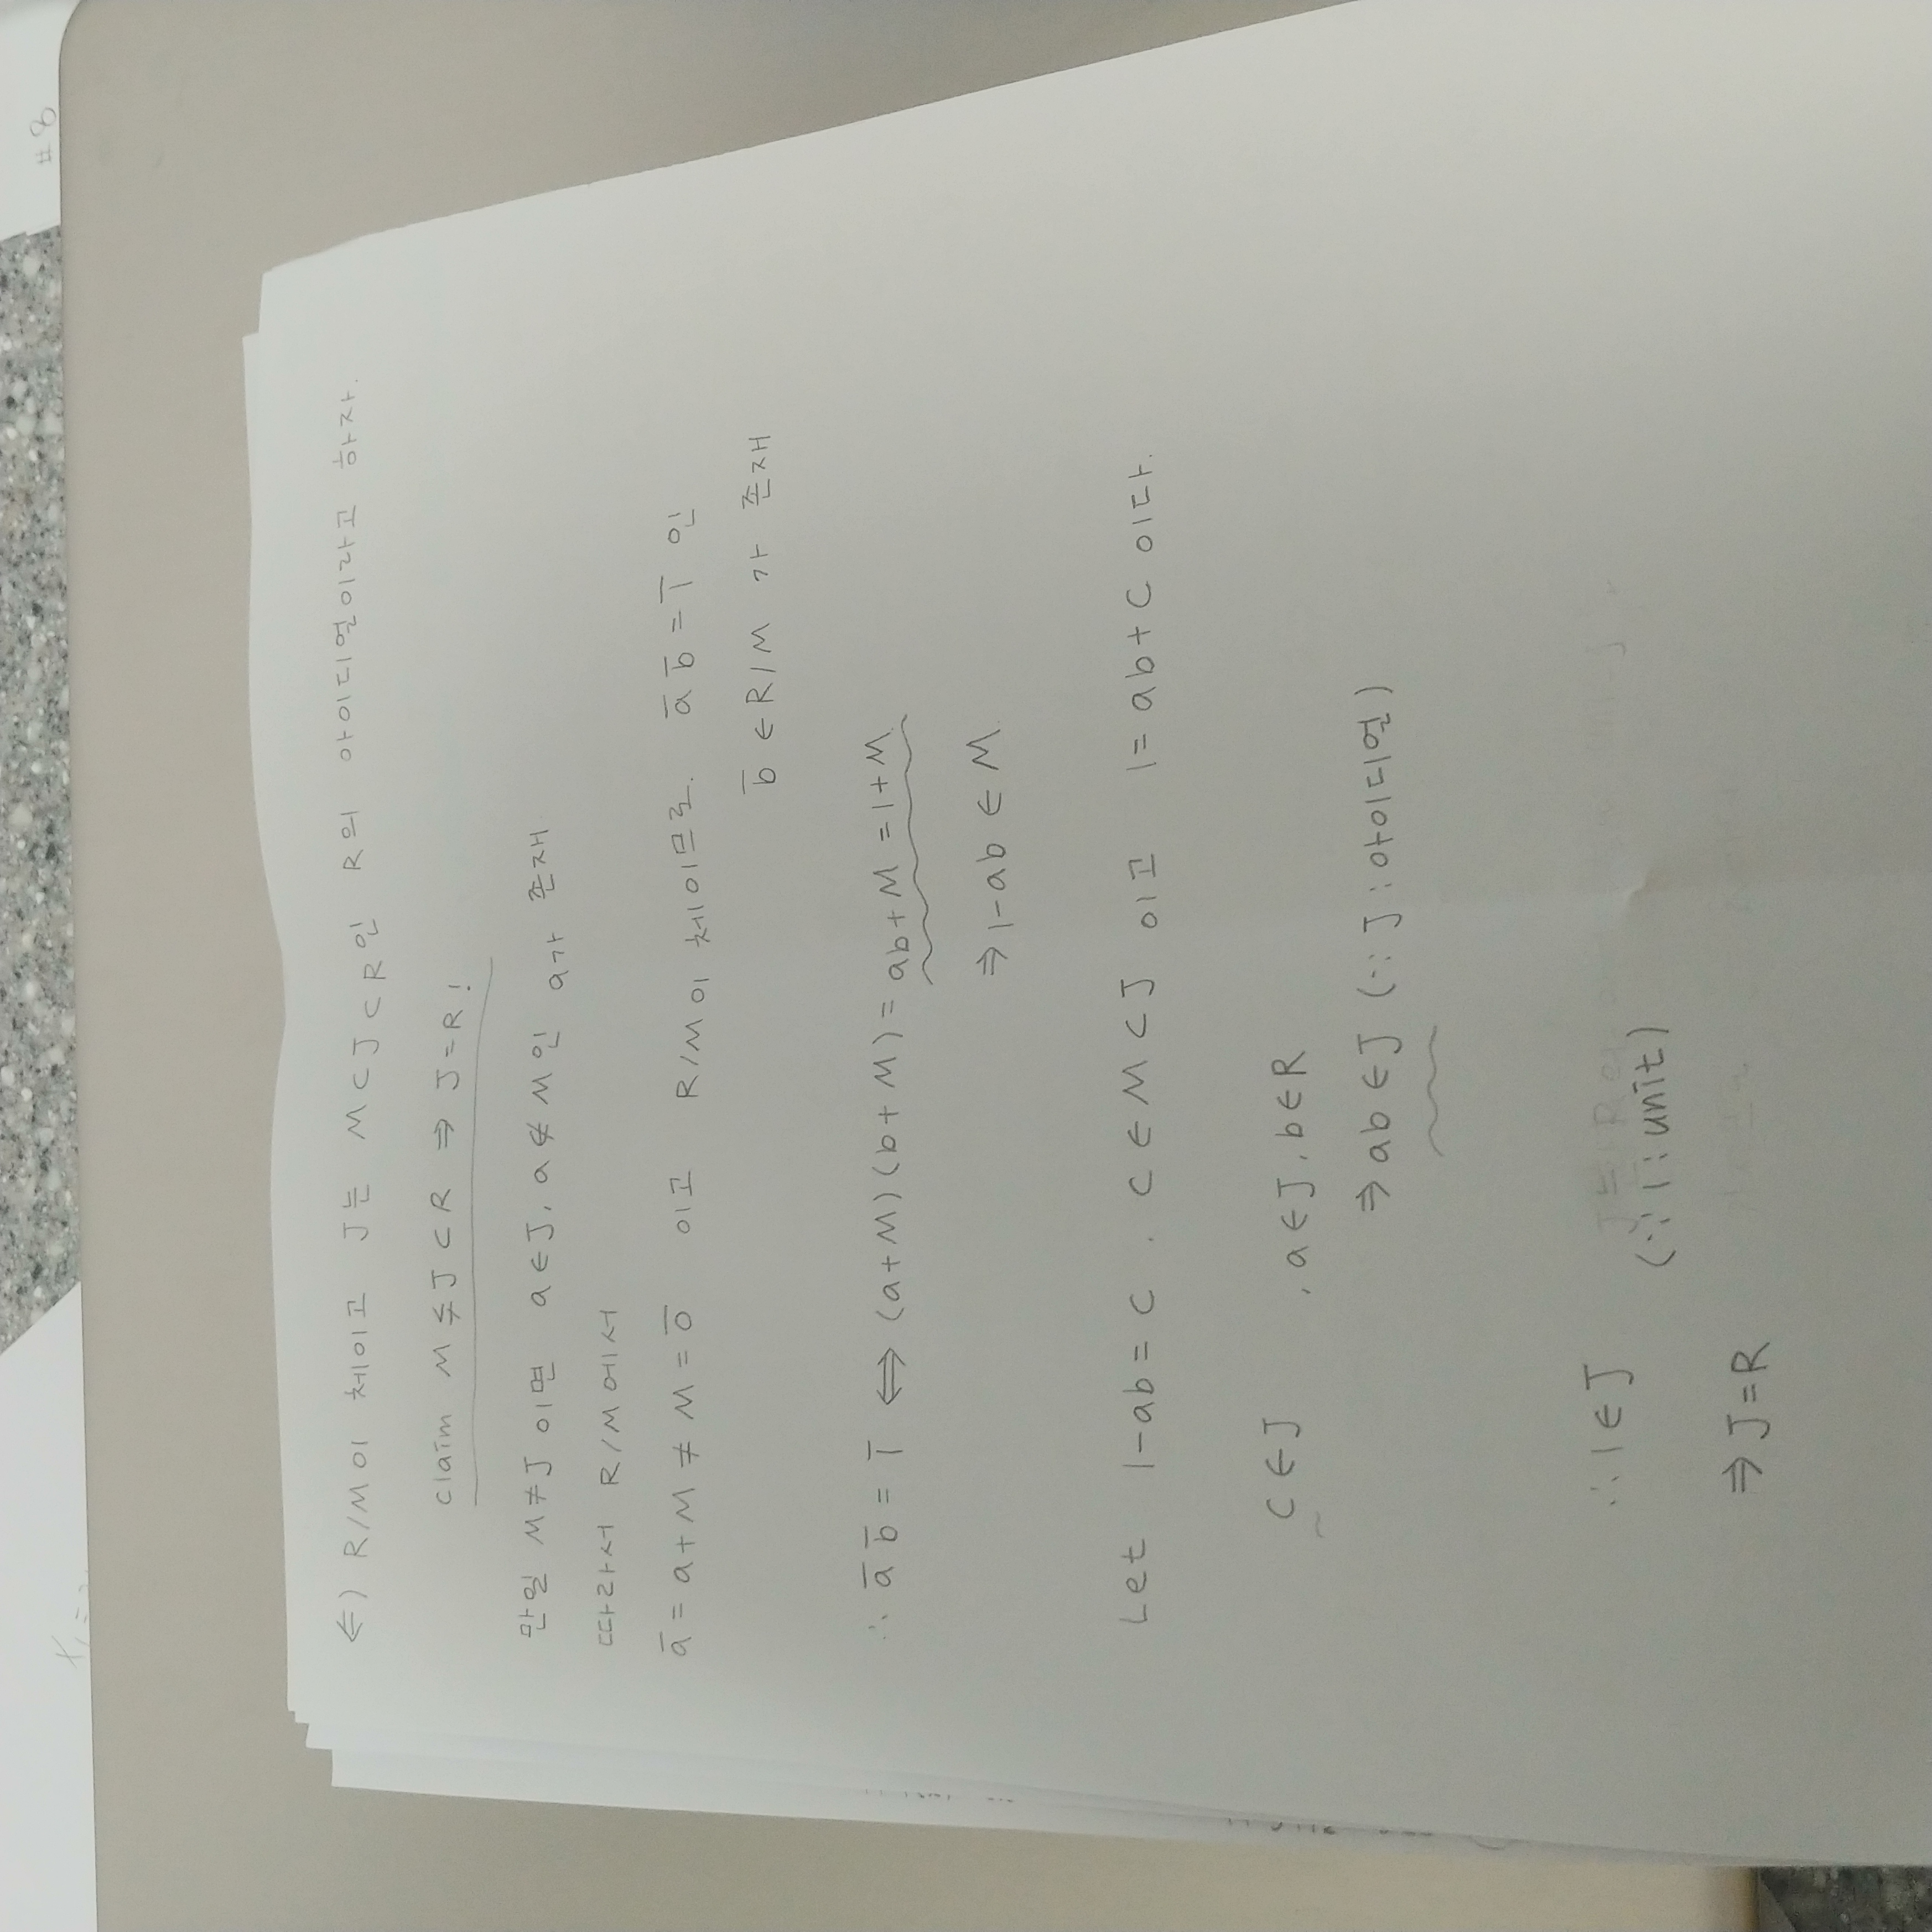 #8
⇐) R/M이 체이고 J는 M⊂J⊂R인 R의 아이디얼이라고 하자.
claim M≨J⊂R ⇒ J=R!
만일 M≠J 이면 a∈J, a∉M인 a가 존재
따라서 R/M에서
ā = a+M ≠ M = 0̄ 이고 R/M이 체이므로. ā b̄ = 1̄ 인
b̄ ∈ R/M 가 존재
∴ ā b̄ = 1̄ ⟺ (a+M)(b+M) = ab+M = 1+M.
⇒ 1-ab ∈ M.
Let 1-ab = c . c∈M⊂J 이고 1 = ab+c 이다.
c∈J , a∈J, b∈R
⇒ ab∈J (∵ J : 아이디얼)
∴ 1∈J
(∵ 1 : unit)
⇒ J=R